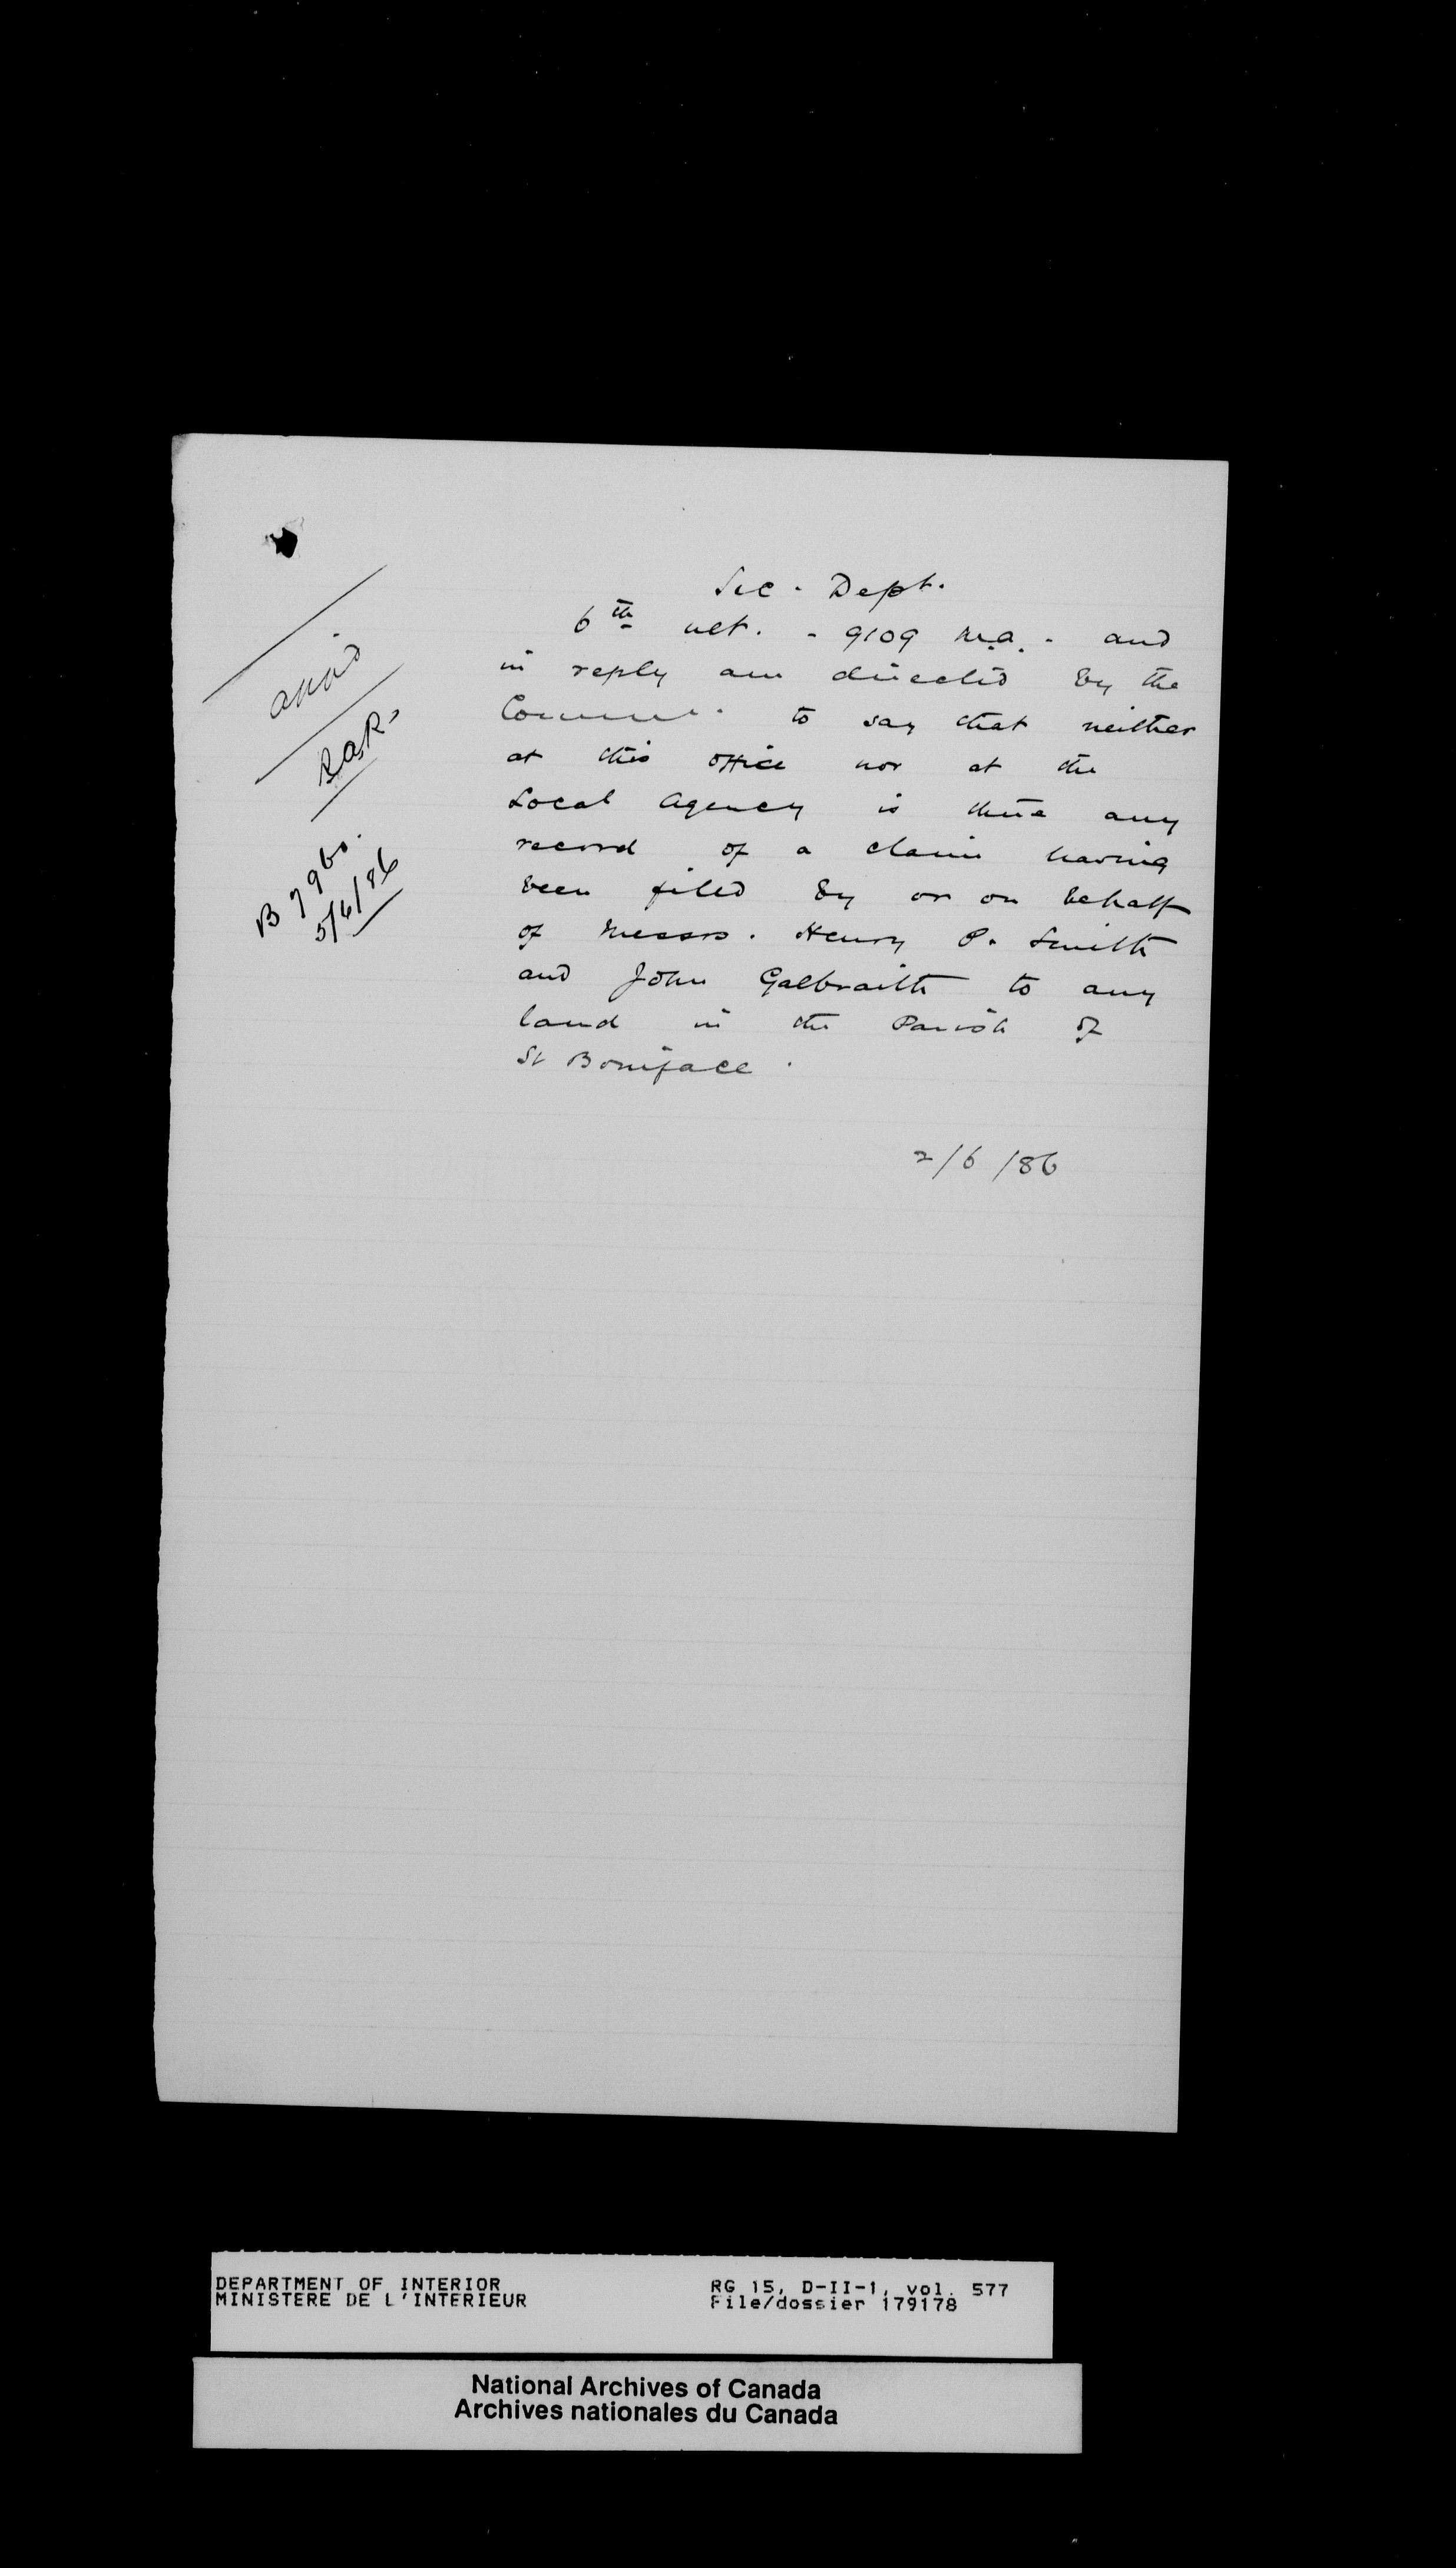 Sec - Dept.
6th ult. - 9109 M.a. - and
in reply am directed by the
to say that neither
at this office nor at the
Local Agency is there any
record of a claim having
been filed by or on behalf
of Messrs. Henry P. Smith
and John Galbraith to any
land in the Parish of
St Boniface.
2/6/86
RAR.
B 7960.
5/6/86
DEPARTMENT OF INTERIOR
MINISTERE DE L'INTERIEUR
RG 15, D-II-1, vol. 577
File/dossier 179178
National Archives of Canada
Archives nationales du Canada